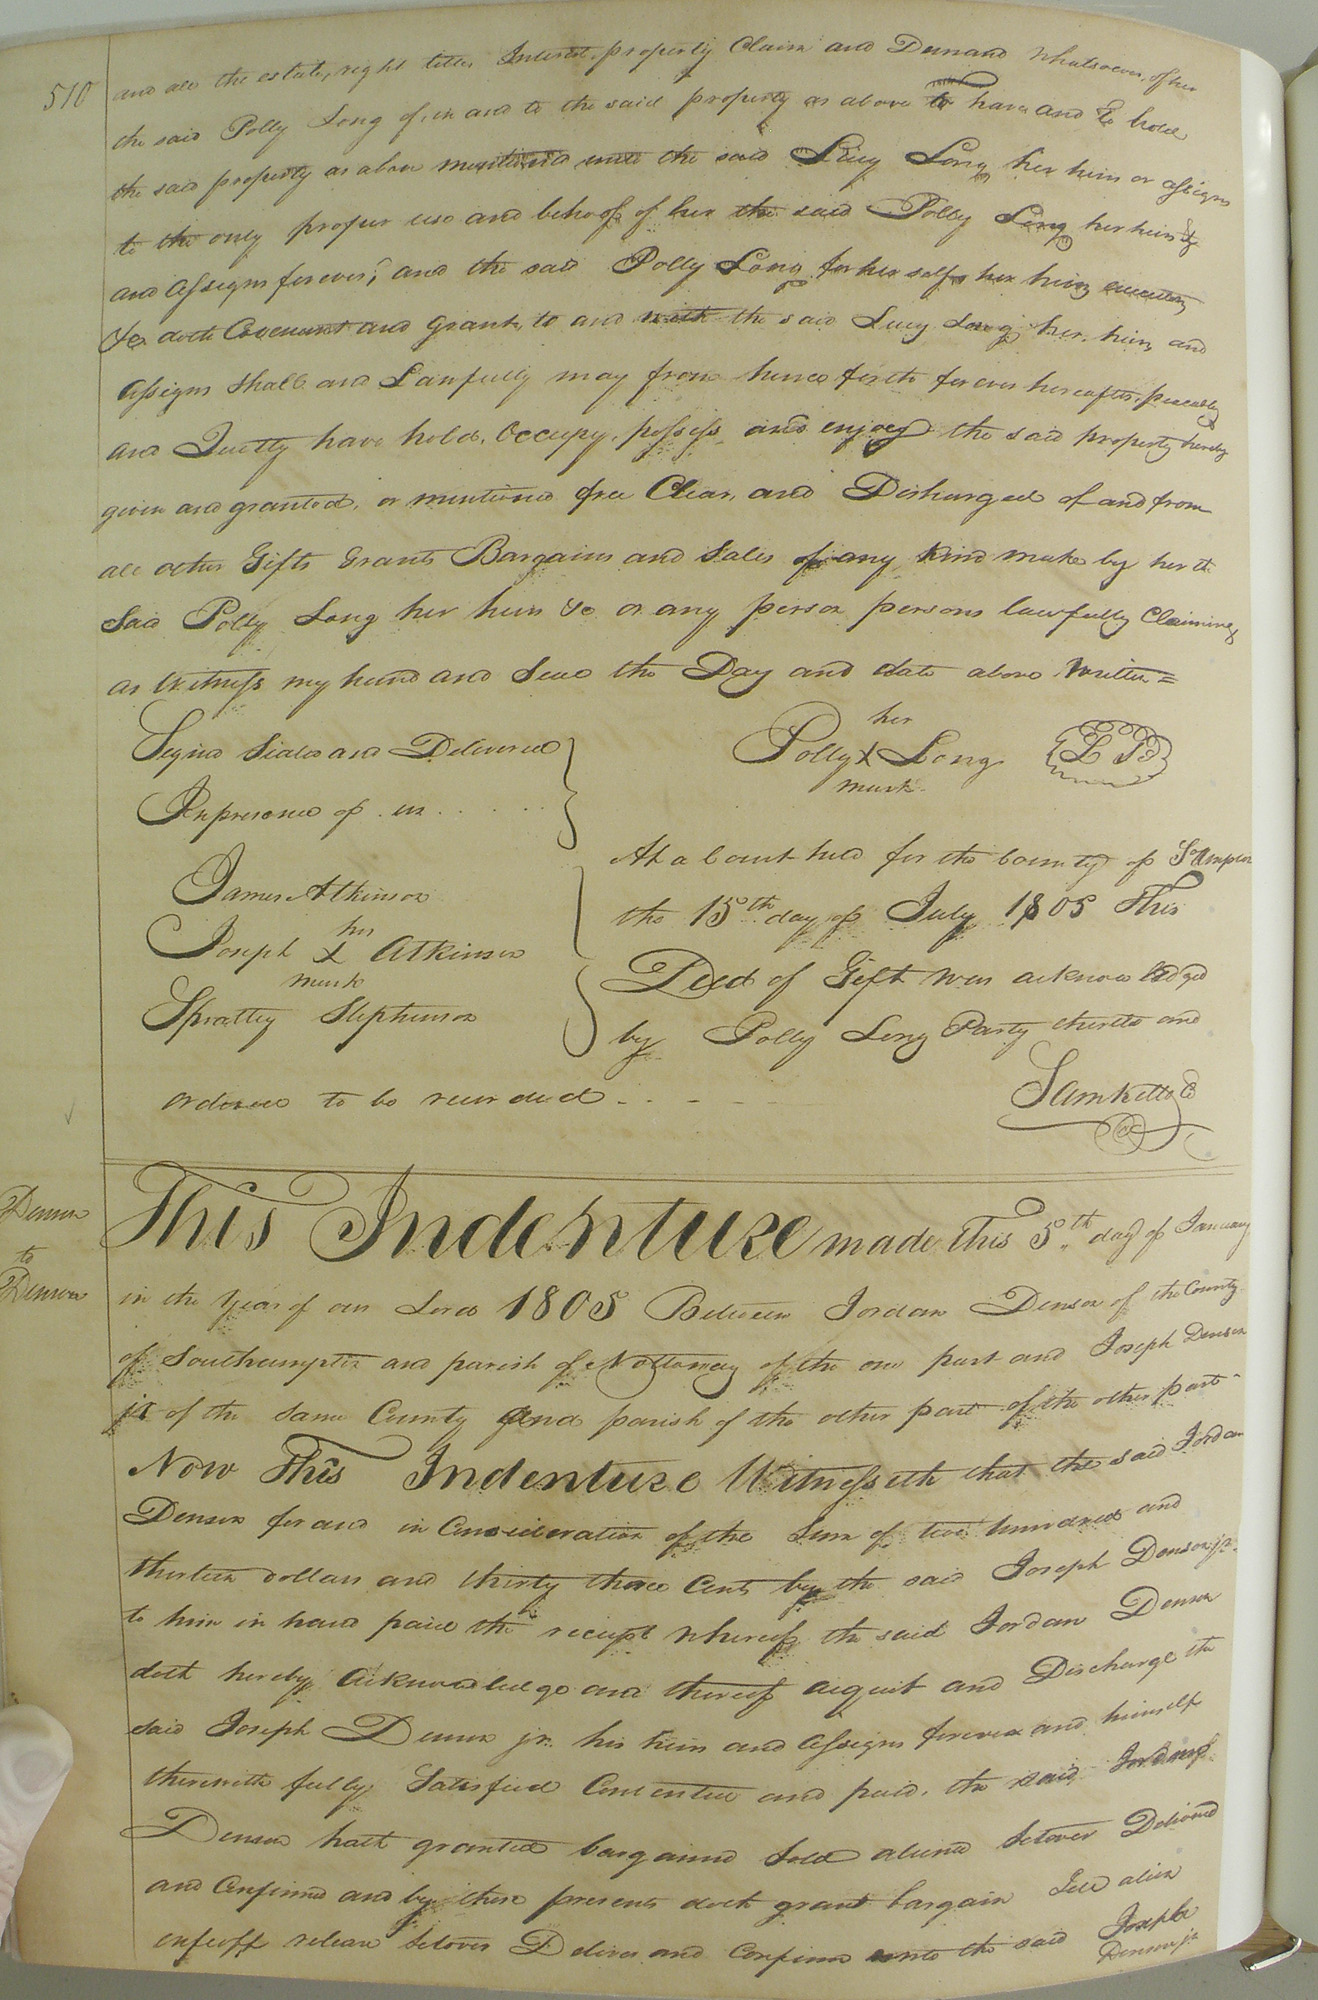 510
and all the estate, right title, Interest, property Claim and Demand Whatsoever, of her
the said Polly Long of, in and to the said property as above to have and to hold
the said property as above mentioned unto the said Lucy Long her heirs or assigns
to the only proper use and behoof of her the said Polly Long her heirs
and assigns forever, and the said Polly Long for her self her heirs executors
&c doth Covenant and grant, to and with the said Lucy Long her, heirs, and
assigns Shall and Lawfully may from hence forth forever hereafter, peaceably
and Quetly have hold, Occupy, possess and enjoy the said property hereby
given and granted, or mentioned free Clear, and Discharged of and from
all other Gifts Grants Bargains and Sales of any Kind make by her th
Said Polly Long her heirs &c or any person persons lawfully Claiming
as Witness my hand and Seal the Day and date above Written =
Signd Seales and Delivered
In presence of us
her
Polly X Long
mark
L S
James Atkinson
his
Joseph X Atkinson
mark
Spratley Stephenson
At a Court held for the County of So Ampton
the 15th day of July 1805 This
Deed of Gift was acknowledged
by Polly Long Party thereto and
ordered to be recorded
Saml Kello C
Denson
to
Denson
This Indenture made this 5th day of January
in the Year of our Lord 1805 Between Jordan Denson of the County
of Southampton and parish of Nottoway of the one part and Joseph Denson
jr of the same County and parish of the other part of the other part
Now This Indenture Witnesseth that the said Jordan
Denson for and in Consideration of the Sum of two hundred and
thirteen dollars and thirty three Cents by the said Joseph Denson jr.
to him in hand paid the receipt whereof the said Jordan Denson
doth hereby acknowledge and thereof acquit and Discharge the
said Joseph Denson jr. his heirs and assigns forever and himself
therewith fully Satisfied Contented and paid, the said Jordan
Denson hath granted bargaind Sold aliend Setover Delivered
and Confirmed and by these presents doth grant bargain Sell alien
enfeoff release Setover Deliver and Confirm unto the said Joseph
Denson jr